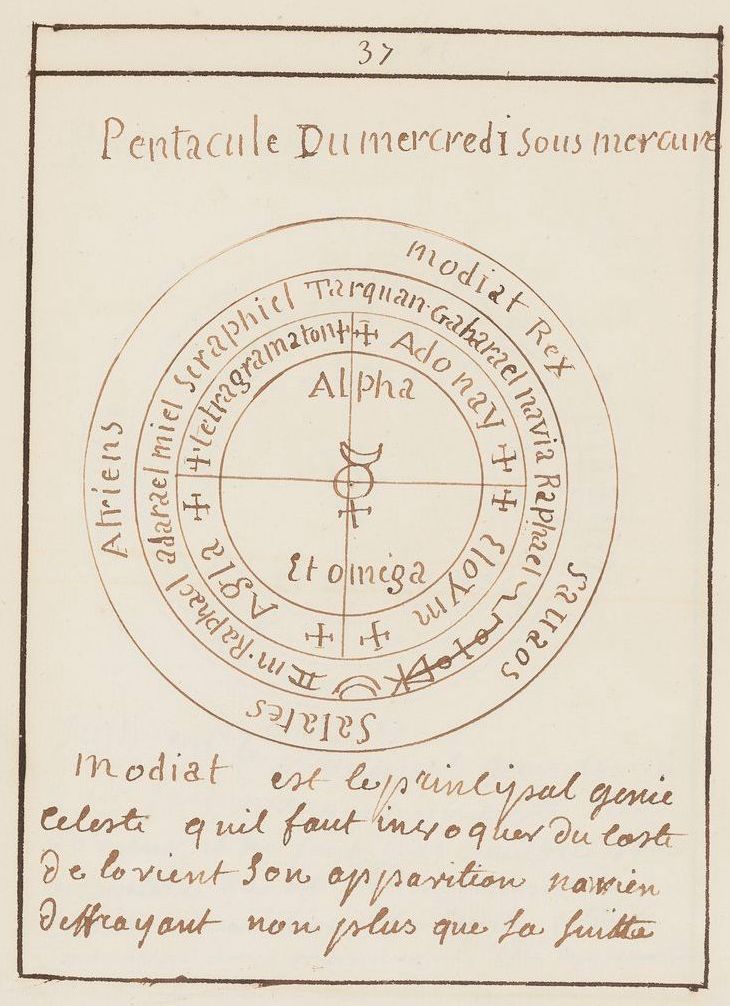 37
Pentacule Du mercredi sous mercure
modiat Rex
Sauaos
Salates
Atriens
Tarquan·Gabarael navia Raphael
m·Raphael adarael miel Seraphiel
Adonay
Eloym
Agla
tetragramaton
Alpha
Et omega
Modiat est le principal genie
celeste quil faut invoquer du coste
de lorient son apparition na rien
deffrayant non plus que sa suitte